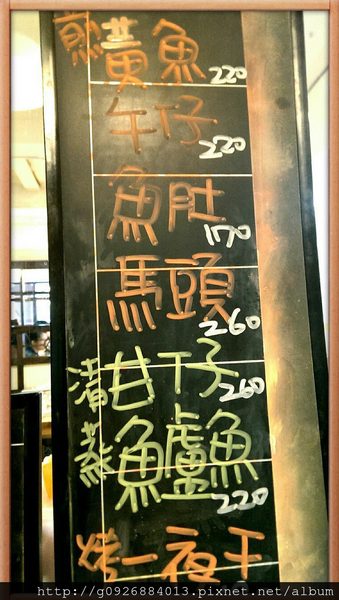 煎黃魚 220
午仔 220
魚肚 170
馬頭 260
清蒸
甘仔 260
鱸魚 220
烤一夜干
http://g0926884013.pixnet.net/album